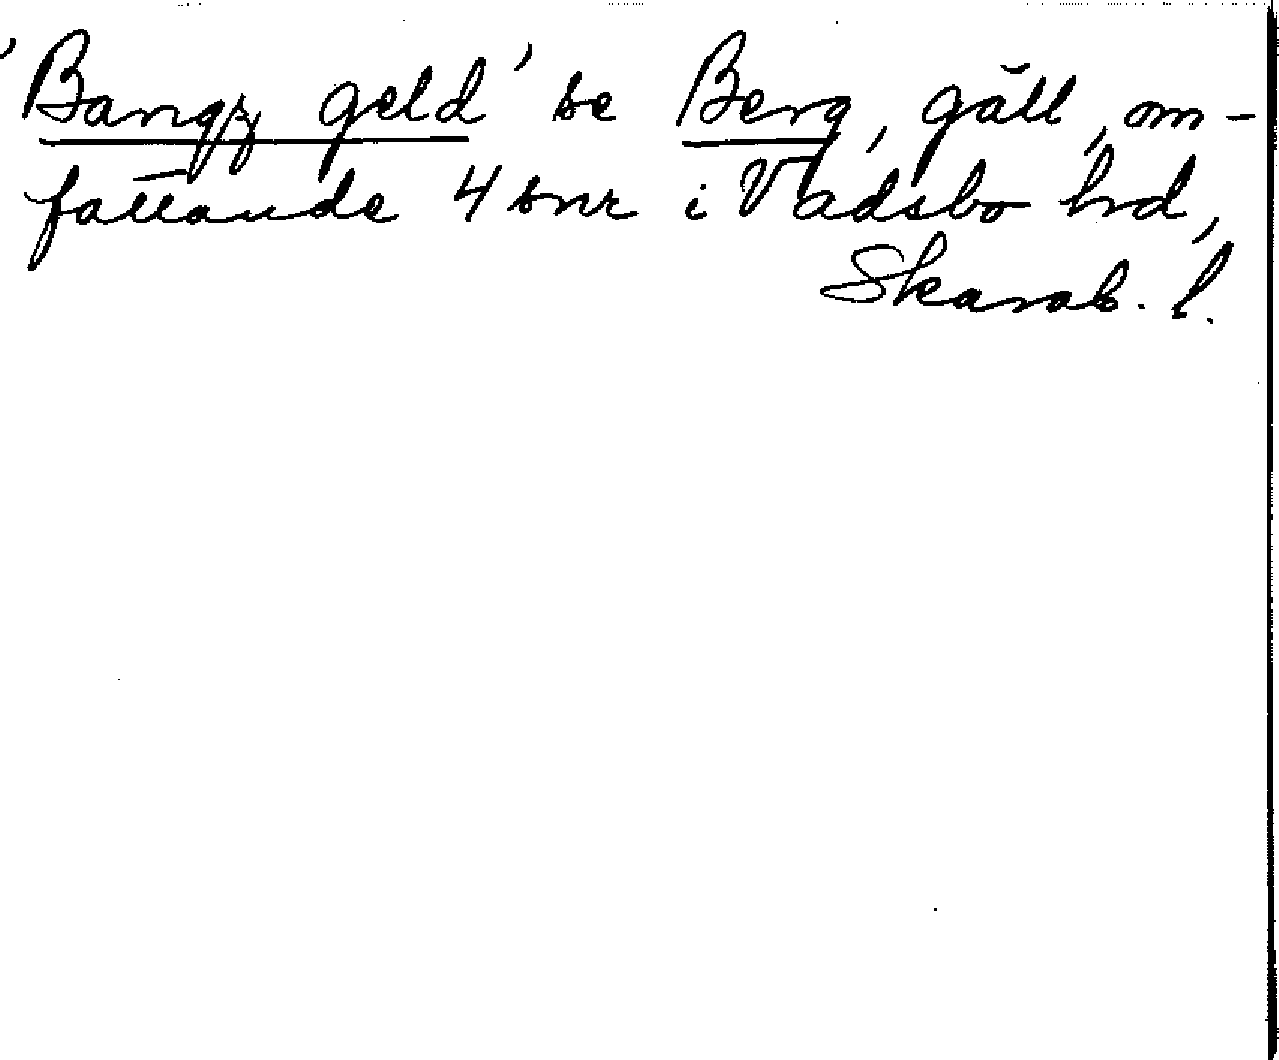 'Bangz geld' se Berg, gäll, om-
fattande 4 snr i Vadsbo hrd,
Skarab. l.